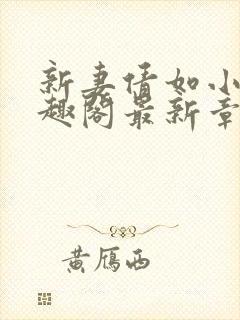 新妻情如小
趣阁最新章
黄雁西